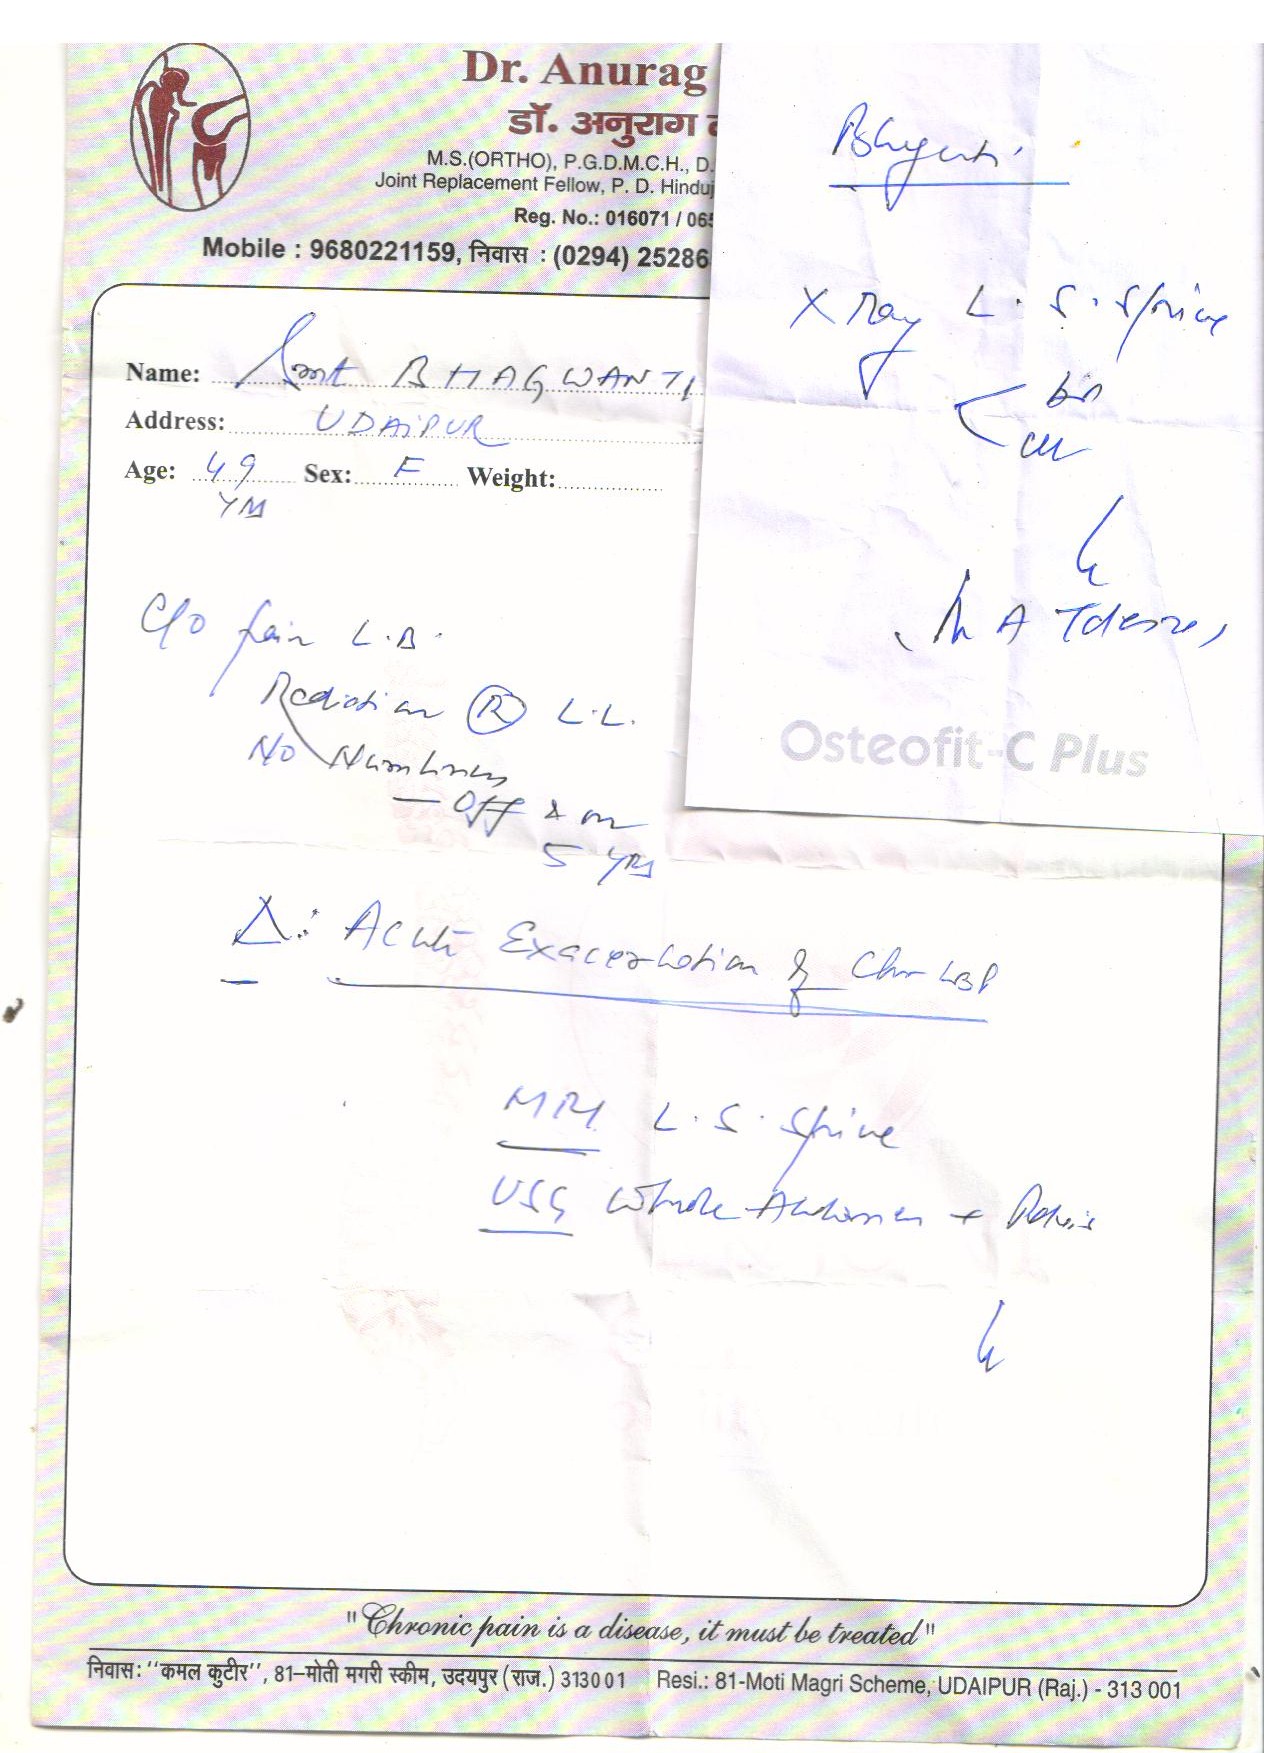 Dr. Anurag
डॉ. अनुराग
M.S.(ORTHO), P.G.D.M.C.H., D.
Joint Replacement Fellow, P. D. Hinduj
Reg. No.: 016071 / 065
Mobile : 9680221159, निवास : (0294) 25286
Name: Smt BHAGWANTI
Address: UDAIPUR
Age: 49 Sex: F Weight:
YRS
C/o pain L.B.
Radiation R L.L.
No Numbness
— Off & on
5 YRS
Δ: Acute Exacerbation of Chr LBP
MRI L.S. Spine
USG Whole Abdomen + Pelvis
X Ray L.S. Spine
Osteofit-C Plus
"Chronic pain is a disease, it must be treated"
निवास: ‘‘कमल कुटीर’’, 81–मोती मगरी स्कीम, उदयपुर (राज.) 313001 Resi.: 81-Moti Magri Scheme, UDAIPUR (Raj.) - 313 001